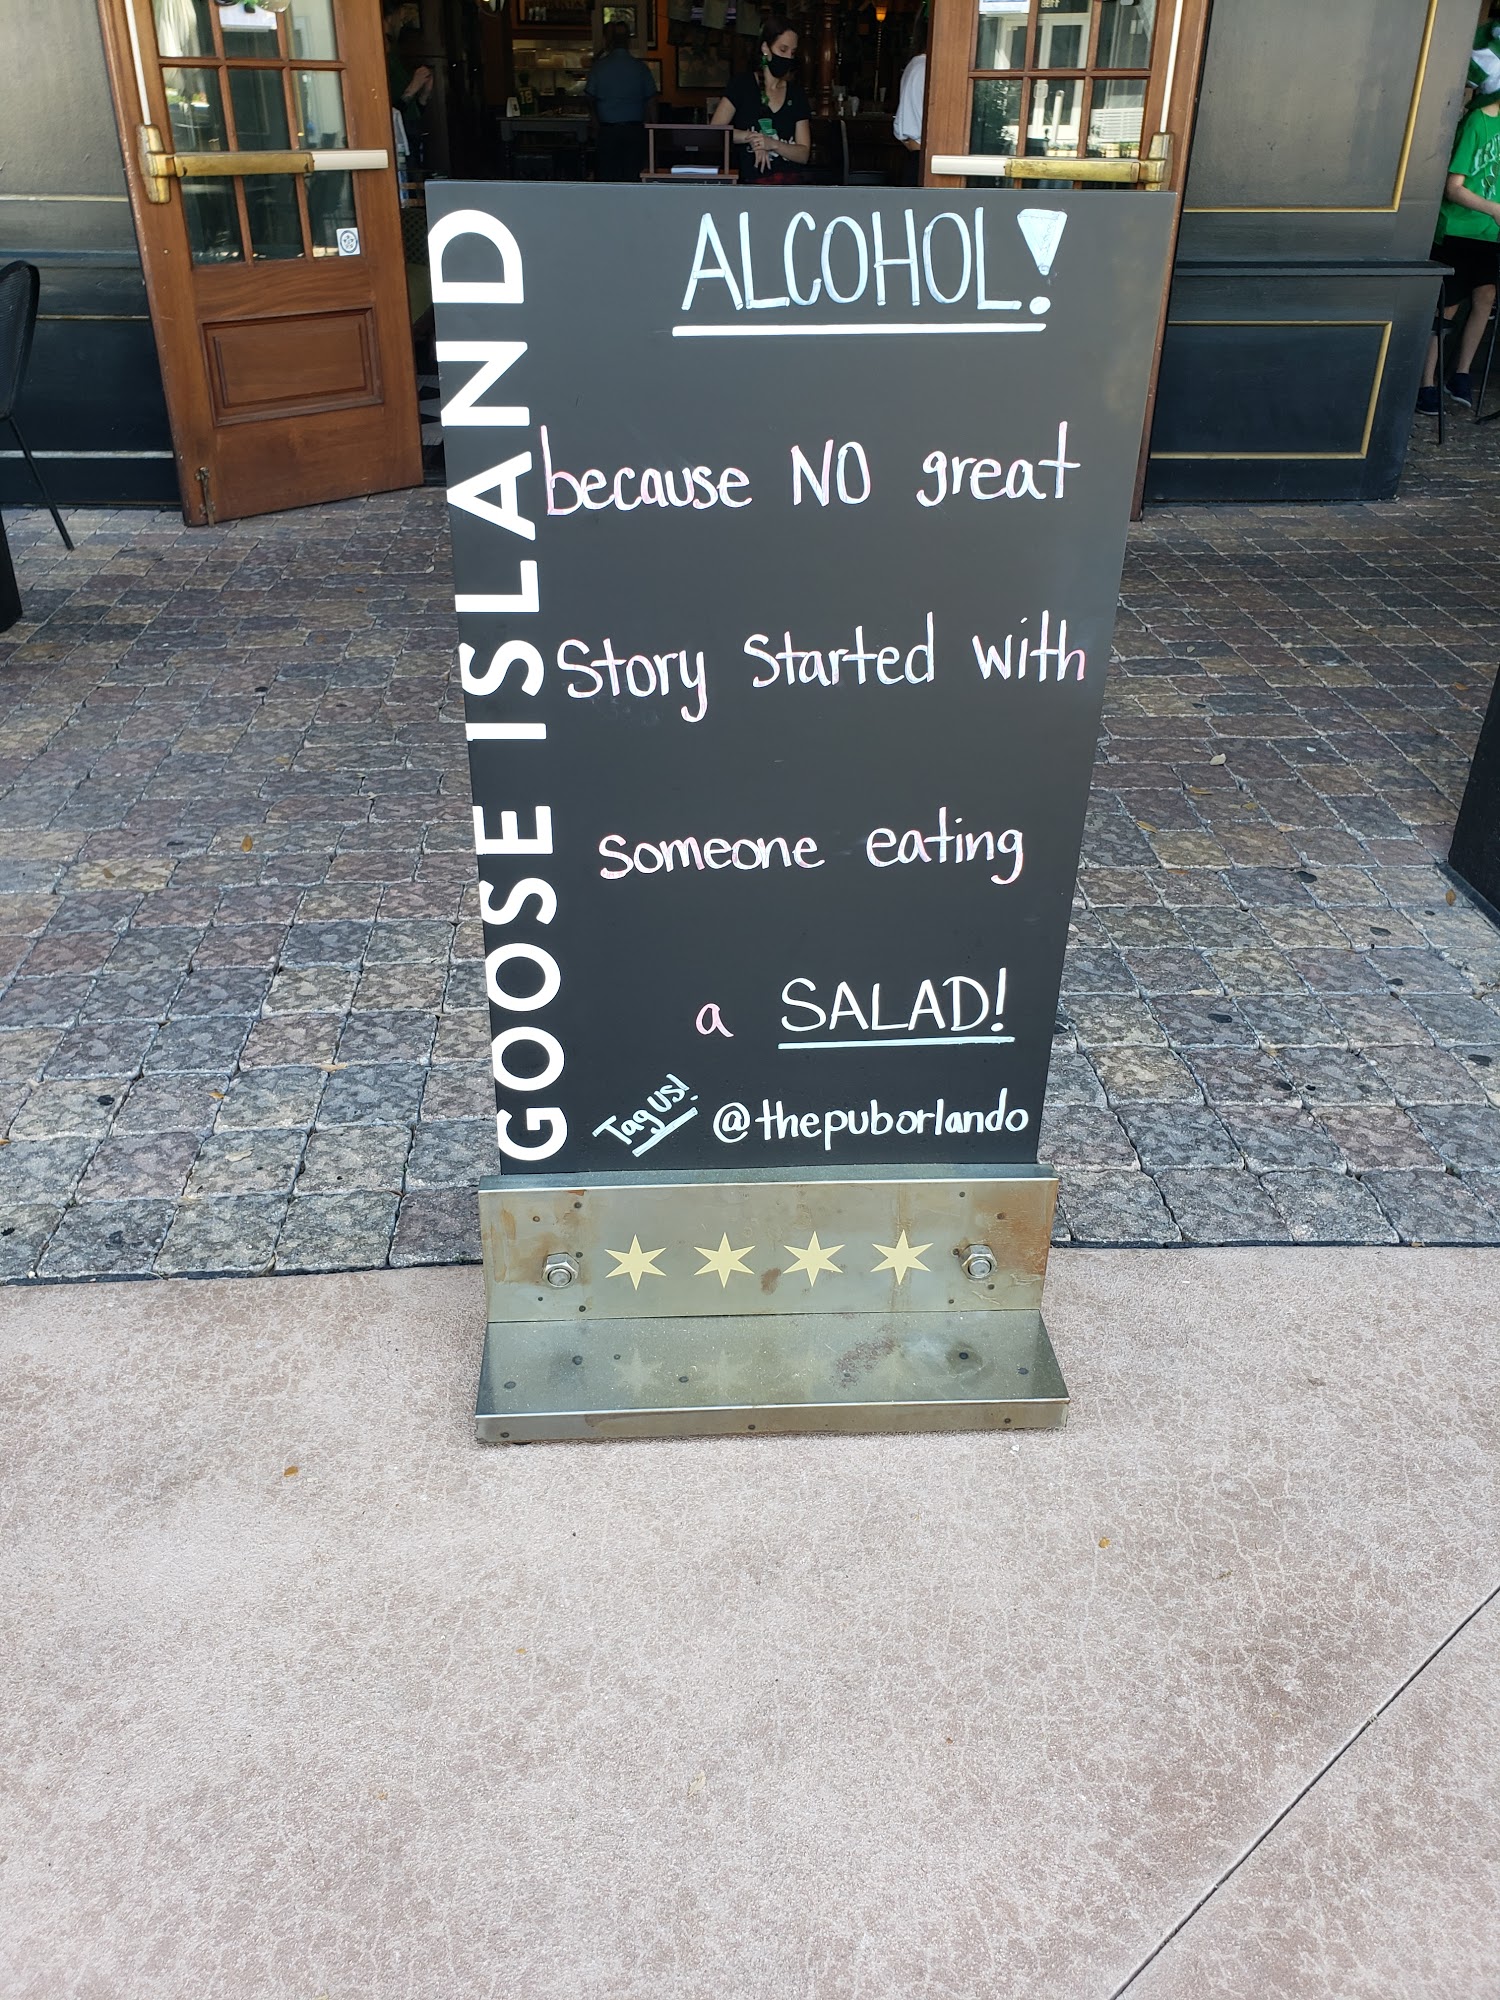 GOOSE ISLAND
ALCOHOL!
because NO great
Story Started with
Someone eating
a SALAD!
Tag US!
@thepuborlando